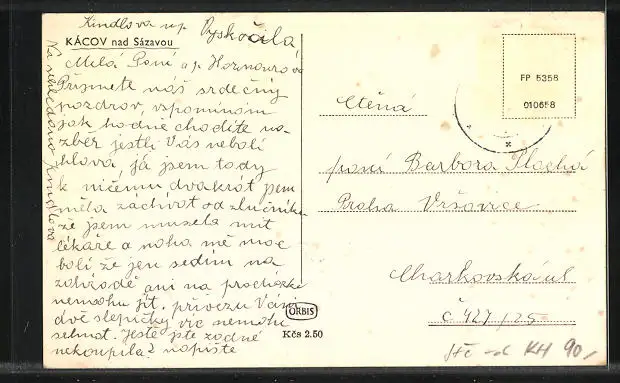 Kindlova
KÁCOV nad Sázavou
Milá Paní a p.
Přijmete náš srdečný
pozdrov, vzpomínám
jak hodně chodíte na
zběr jestli Vás nebolí
hlová, já jsem tady
k ničemu dvakrát jsem
měla záchvat od žlučníku
že jsem musela mít
lékaře a noha mě moc
bolí že jen sedím na
zahradě ani na procházke
nemohu jít. přivezu Vám
dvě slepičky víc nemohu
sehnat. Jestě jste žádné
nekoupila? napište
Kindlova
ORBIS
Kčs 2.50
FP 5358
010658
Ctěná
paní Barbora
Praha Vršovice
Charkovská ul
č 427/25
KH 90,-